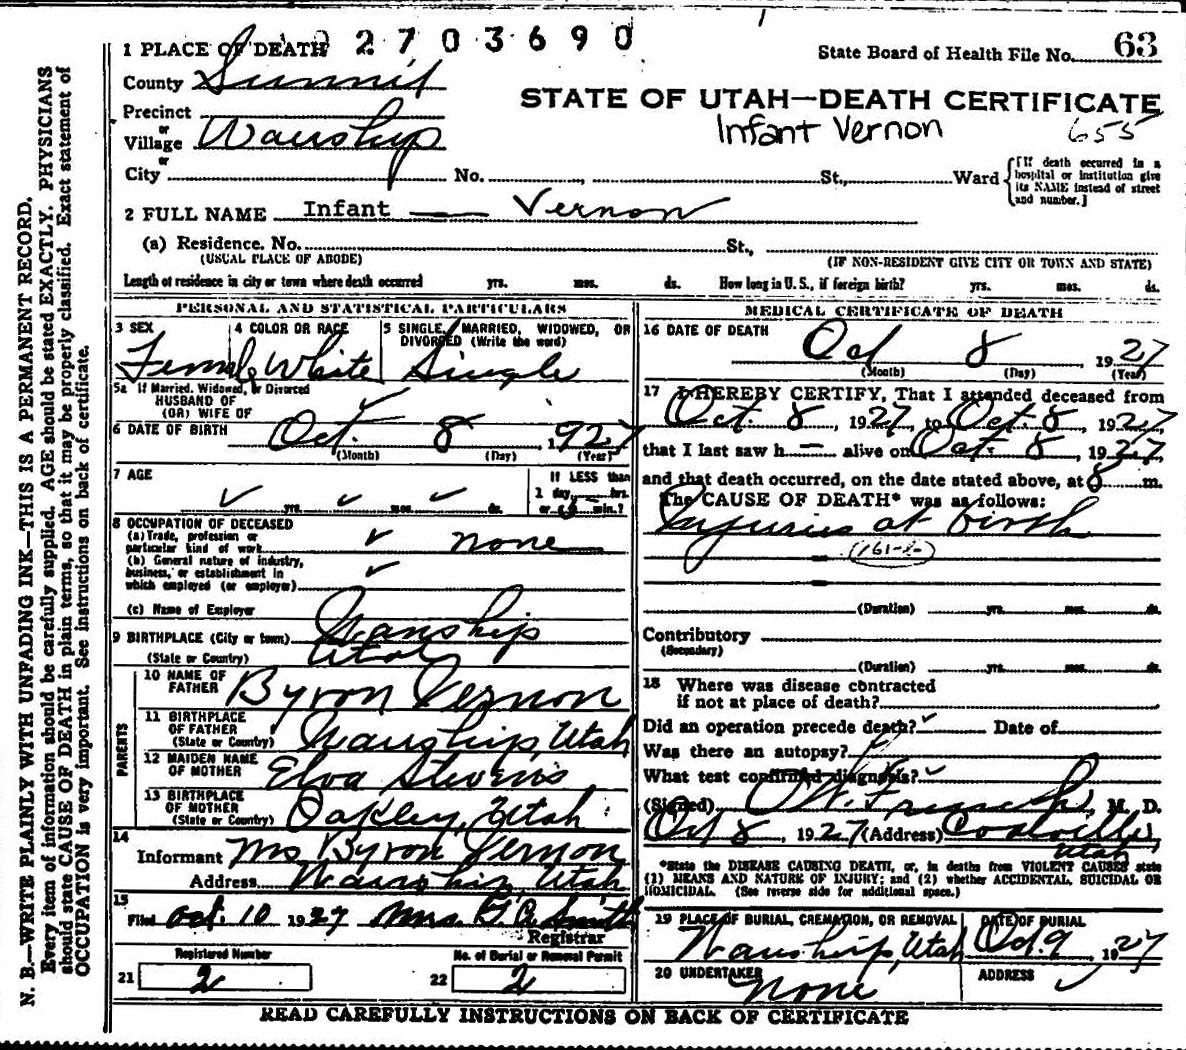 2703690
1 PLACE OF DEATH
State Board of Health File No. 63
County Summit
STATE OF UTAH—DEATH CERTIFICATE
Precinct
Infant Vernon 655
or
Village Wanship
or
City No. St., Ward
[If death occurred in a
hospital or institution give
its NAME instead of street
and number.]
2 FULL NAME Infant — Vernon
(a) Residence. No. St.,
(USUAL PLACE OF ABODE) (IF NON-RESIDENT GIVE CITY OR TOWN AND STATE)
Length of residence in city or town where death occurred yrs. mos. ds. How long in U. S., if foreign birth? yrs. mos. ds.
PERSONAL AND STATISTICAL PARTICULARS
3 SEX 4 COLOR OR RACE 5 SINGLE, MARRIED, WIDOWED, OR
DIVORCED (Write the word)
Female White Single
5a If Married, Widowed, or Divorced
HUSBAND OF
(OR) WIFE OF
6 DATE OF BIRTH Oct. 8 1927
(Month) (Day) (Year)
7 AGE If LESS than
1 day, hrs.
yrs. mos. ds. or min.?
8 OCCUPATION OF DECEASED
(a) Trade, profession or
particular kind of work none
(b) General nature of industry,
business, or establishment in
which employed (or employer)
(c) Name of Employer
9 BIRTHPLACE (City or town) Wanship
(State or Country) Utah
PARENTS
10 NAME OF
FATHER Byron Vernon
11 BIRTHPLACE
OF FATHER
(State or Country) Wanship, Utah
12 MAIDEN NAME
OF MOTHER Elva Stevens
13 BIRTHPLACE
OF MOTHER
(State or Country) Oakley, Utah
14
Informant Mrs Byron Vernon
Address Wanship, Utah
15
Filed Oct. 10 1927 Mrs. G. A. Smith
Registrar
Registered Number No. of Burial or Removal Permit
21 2 22 2
MEDICAL CERTIFICATE OF DEATH
16 DATE OF DEATH
Oct 8 1927
(Month) (Day) (Year)
17 I HEREBY CERTIFY, That I attended deceased from
Oct. 8, 1927, to Oct. 8, 1927
that I last saw h— alive on Oct. 8, 1927
and that death occurred, on the date stated above, at 8 m.
The CAUSE OF DEATH* was as follows:
Injuries at birth
(161-b)
(Duration) yrs. mos. ds.
Contributory
(Secondary)
(Duration) yrs. mos. ds.
18 Where was disease contracted
if not at place of death?
Did an operation precede death? Date of
Was there an autopsy?
What test confirmed diagnosis?
(Signed) M. D.
Oct 8, 1927 (Address) Coalville,
Utah
*State the DISEASE CAUSING DEATH, or, in deaths from VIOLENT CAUSES state
(1) MEANS AND NATURE OF INJURY; and (2) whether ACCIDENTAL, SUICIDAL OR
HOMICIDAL. (See reverse side for additional space.)
19 PLACE OF BURIAL, CREMATION, OR REMOVAL DATE OF BURIAL
Wanship, Utah Oct. 9 1927
20 UNDERTAKER ADDRESS
none
READ CAREFULLY INSTRUCTIONS ON BACK OF CERTIFICATE
N. B.—WRITE PLAINLY WITH UNFADING INK—THIS IS A PERMANENT RECORD.
Every item of information should be carefully supplied. AGE should be stated EXACTLY. PHYSICIANS
should state CAUSE OF DEATH in plain terms, so that it may be properly classified. Exact statement of
OCCUPATION is very important. See instructions on back of certificate.